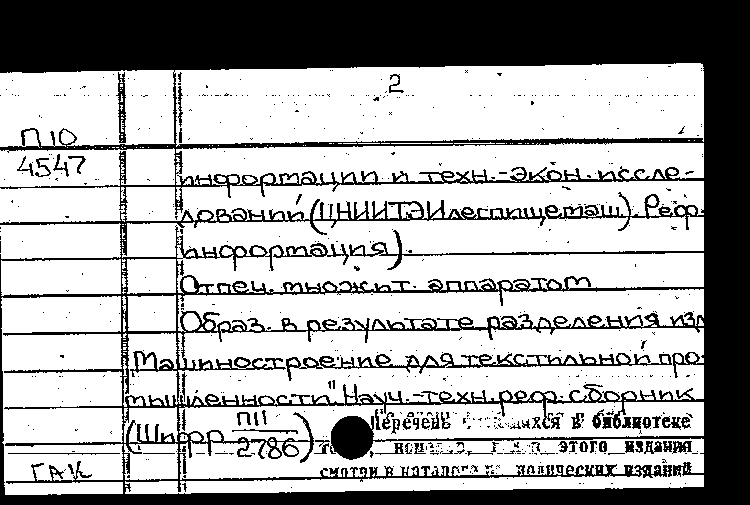 2
П 10
4547
информации и техн.-экон. иссле-
дований (ЦНИИТЭИлегпищемаш). Реф.
информация).
Отпеч. множит. аппаратом
Образ. в результате разделения изд
"Машиностроение для текстильной про-
мышленности". Науч.-техн. реф. сборник
(Шифр П11/2786)
Перечень в библиотеке
этого издания
смотри в каталоге издания
ГАК